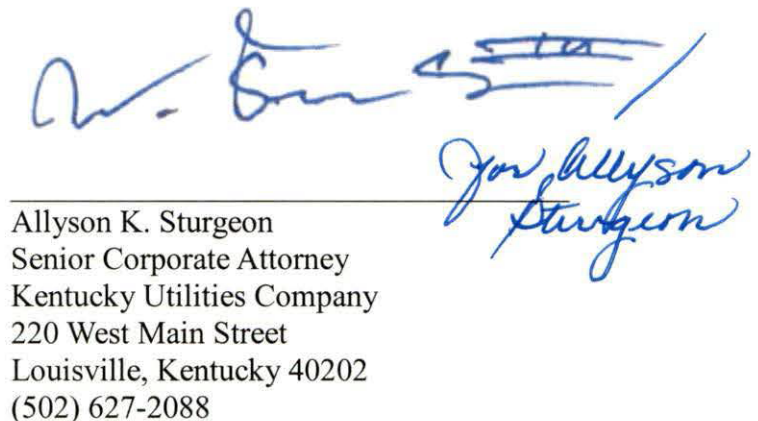 for Allyson
Sturgeon
Allyson K. Sturgeon
Senior Corporate Attorney
Kentucky Utilities Company
220 West Main Street
Louisville, Kentucky 40202
(502) 627-2088